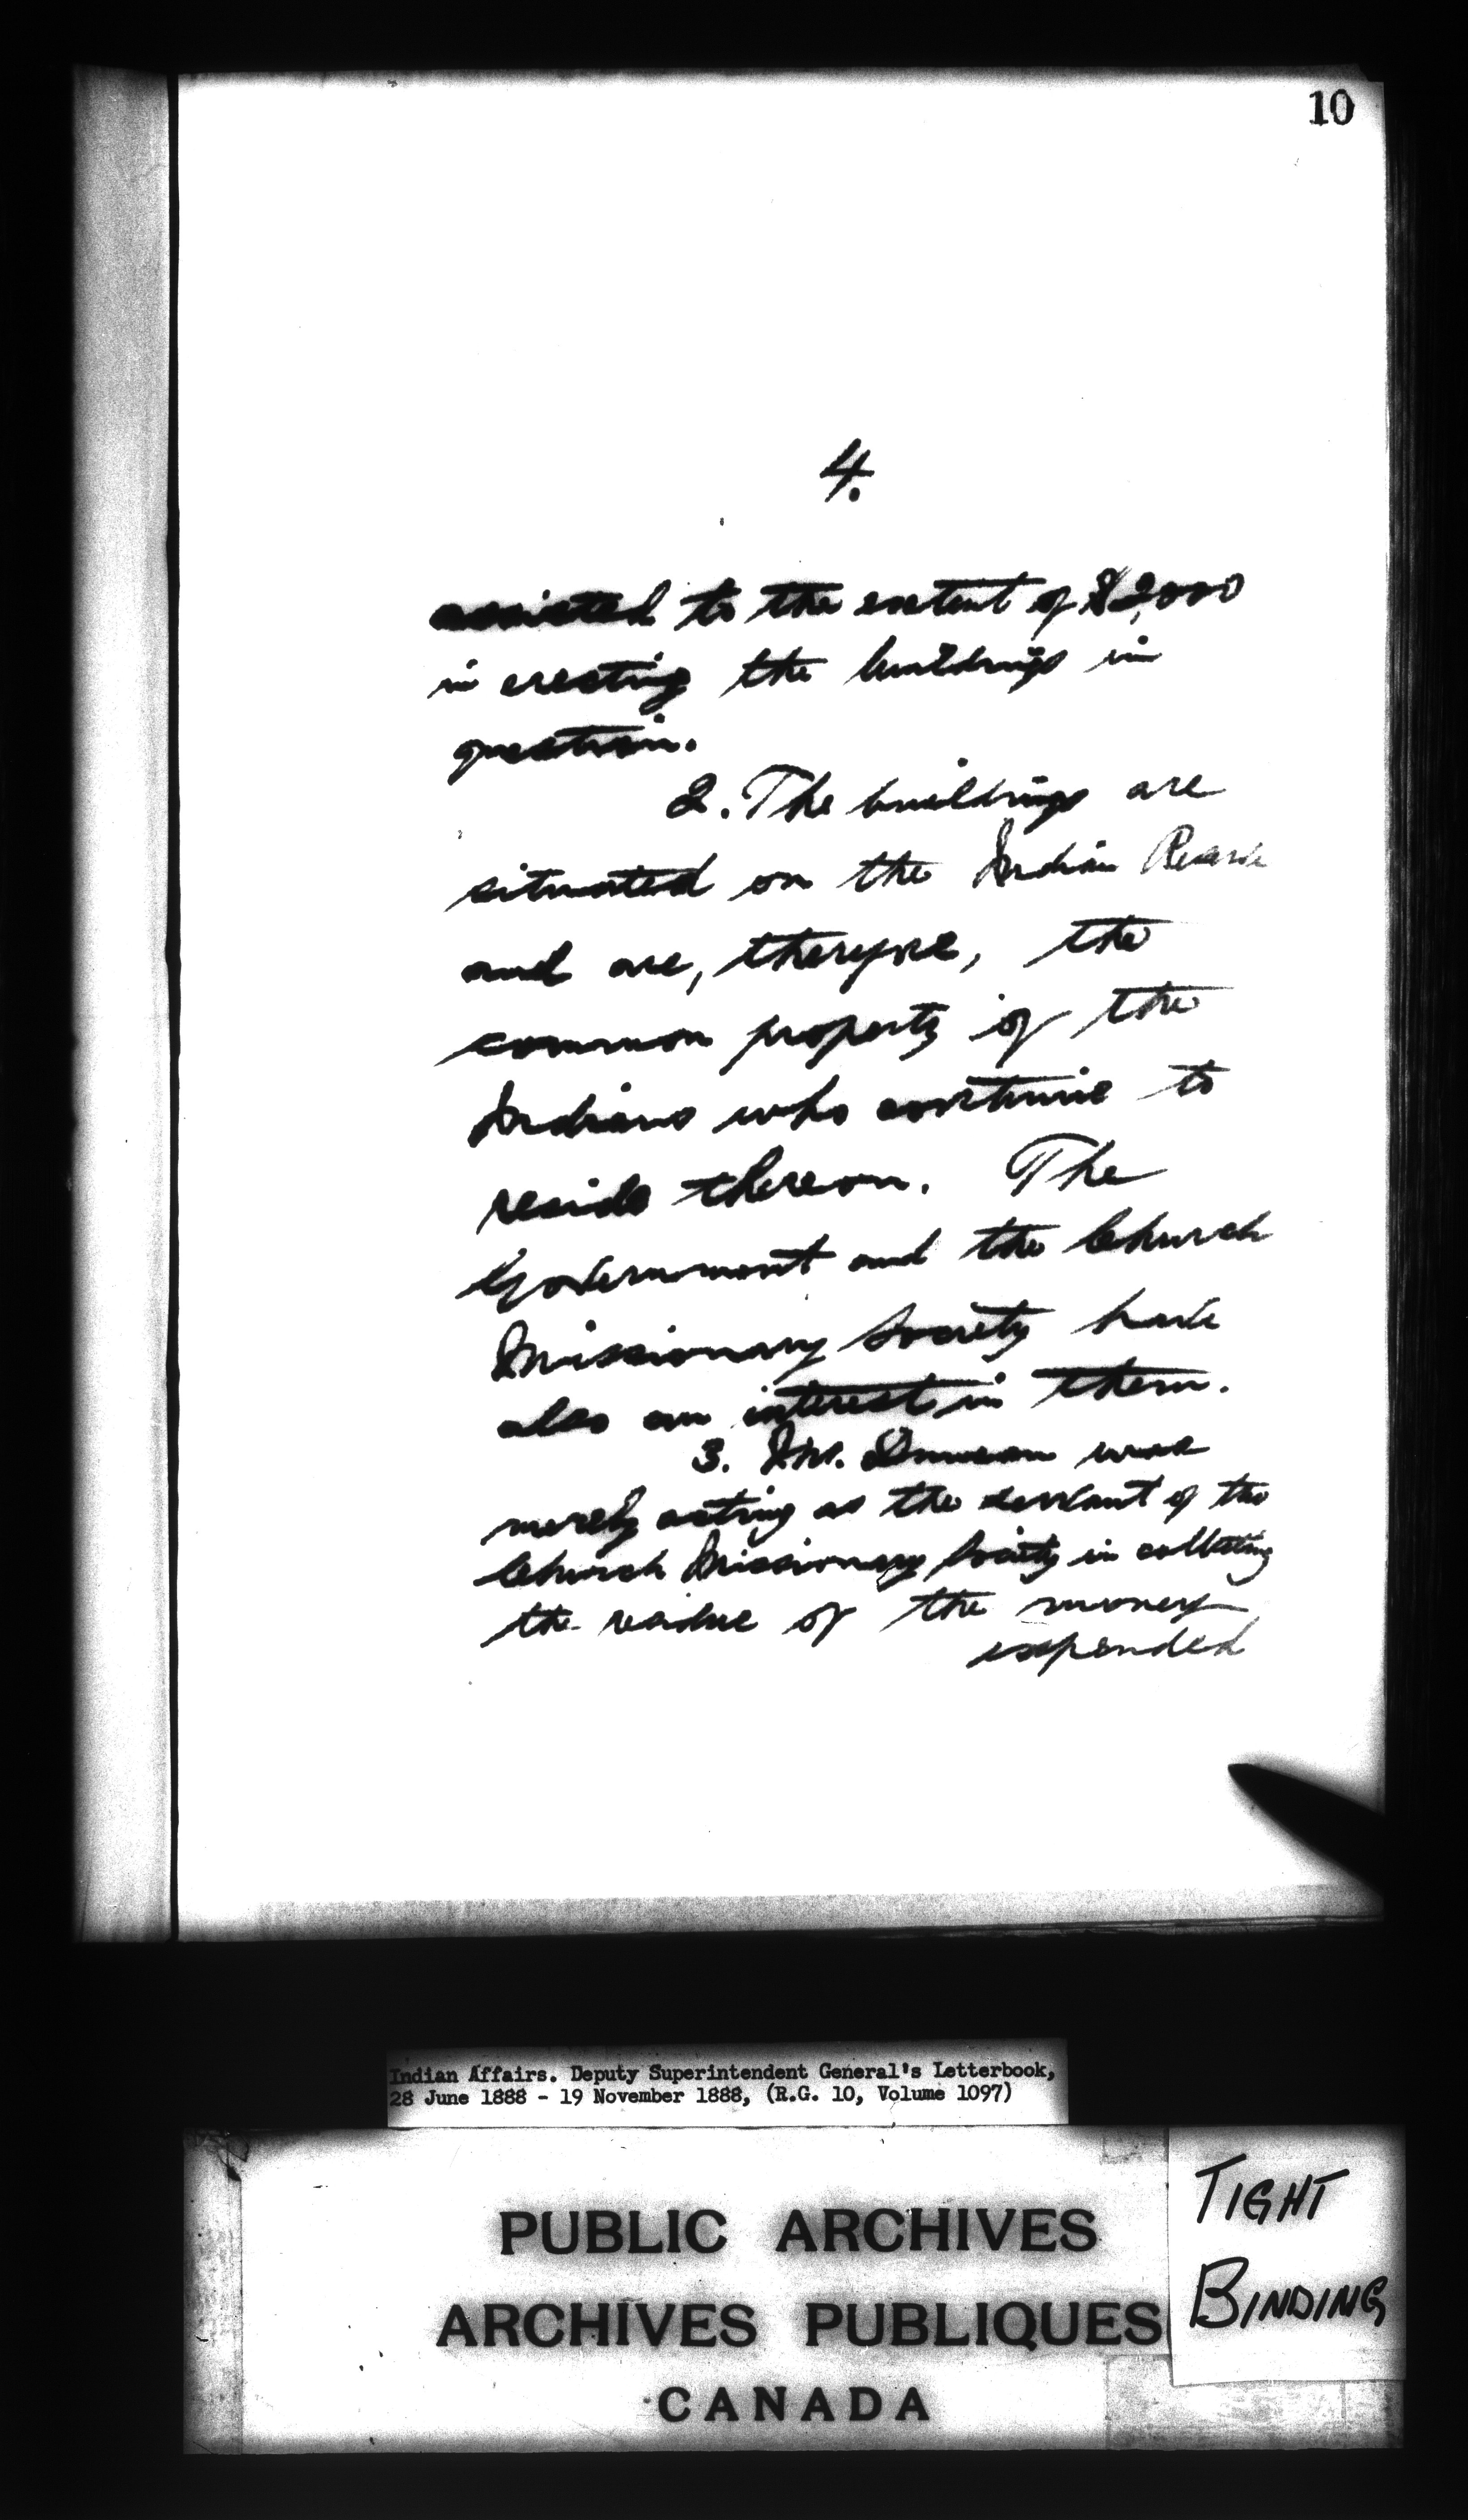 10
4.
assisted to the extent of $2,000
in erecting the buildings in
question.
2. The buildings are
situated on the Indian Reserve
and are, therefore, the
common property of the
Indians who continue to
reside thereon. The
Government and the Church
Missionary Society have
also an interest in them.
3. Mr. Duncan was
merely acting as the servant of the
Church Missionary Society in collecting
the residue of the money
expended
Indian Affairs. Deputy Superintendent General's Letterbook,
28 June 1888 - 19 November 1888, (R.G. 10, Volume 1097)
PUBLIC ARCHIVES
ARCHIVES PUBLIQUES
CANADA
TIGHT
BINDING